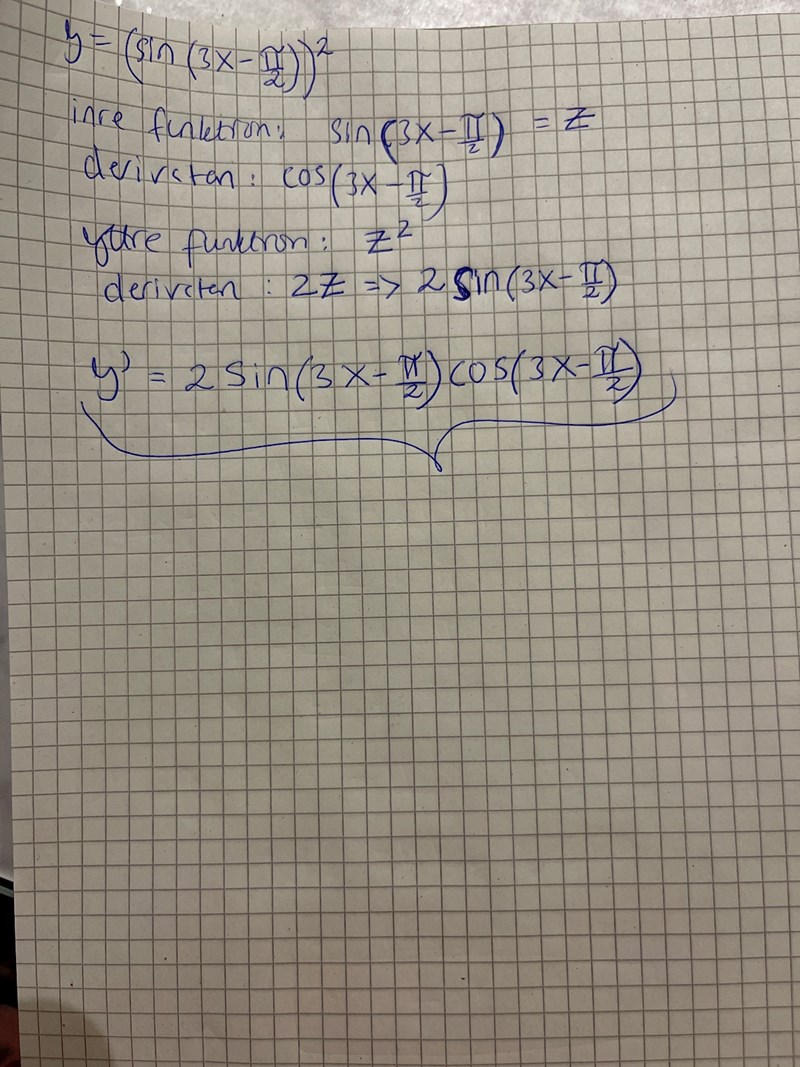 y = (sin(3x - π/2))²
inre funktion: sin(3x - π/2) = z
derivatan: cos(3x - π/2)
yttre funktion: z²
derivatan: 2z => 2 sin(3x - π/2)
y' = 2 sin(3x - π/2) cos(3x - π/2)